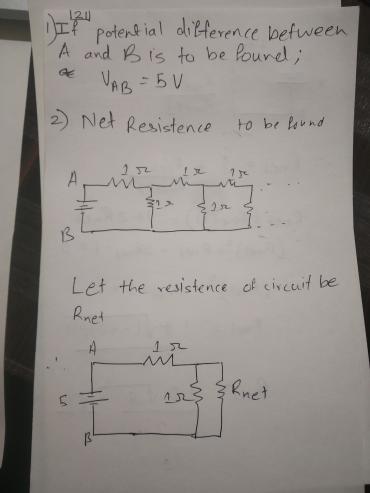 |21|
1) If potential difference between
A and B is to be found;
V_AB = 5 V
2) Net Resistence to be found
1 Ω 1 Ω 1 Ω
A
1 Ω 1 Ω
B
Let the resistence of circuit be
Rnet
∴ A 1 Ω
5 1 Ω Rnet
B